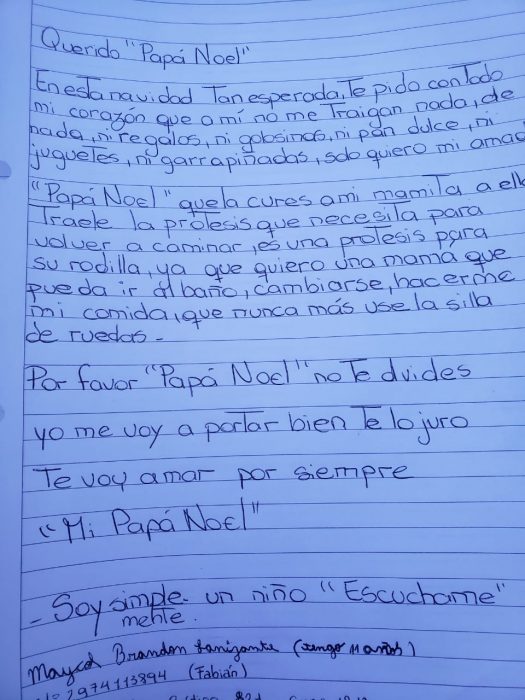 Querido "Papá Noel"
En esta navidad Tan esperada, Te pido con Todo
mi corazón que a mí no me Traigan nada, de
nada, ni regalos, ni golosinas, ni pan dulce, ni
juguetes, ni garrapiñadas, solo quiero mi amad
"Papá Noel" que la cures a mi mamita a ella
Traele la protesis que necesita para
volver a caminar, es una protesis para
su rodilla, ya que quiero una mama que
pueda ir al baño, cambiarse, hacerme
mi comida, que nunca más use la silla
de ruedas -
Por favor "Papá Noel" no Te olvides
yo me voy a portar bien Te lo juro
Te voy amar por siempre
"Mi Papá Noel"
- Soy simple- un niño "Escuchame"
mente.
Maycol Brandon (tengo 11 años)
2974113894 (Fabián)